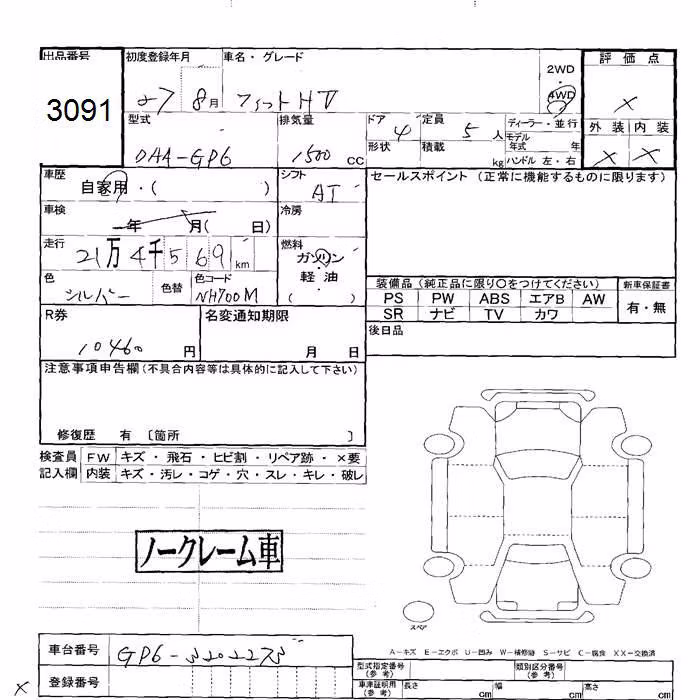 出品番号 初度登録年月 車名・グレード 2WD 評価点
3091 27 8月 フィットHV 4WD ×
型式 排気量 ドア 4 定員 5人 ディーラー・並行 外装 内装
モデル
DAA-GP6 1500cc 形状 積載 kg 年式 年 × ×
ハンドル 左・右
車歴 自家用・( ) シフト AT セールスポイント (正常に機能するものに限ります)
車検 年 月( 日) 冷房
走行 21万4千569km 燃料 ガソリン
軽油
( )
色 シルバー 色替 色コード NH700M
装備品 (純正品に限り○をつけてください) 新車保証書
PS PW ABS エアB AW 有・無
SR ナビ TV カワ
R券 名変通知期限 後日品
10460円 月 日
注意事項申告欄 (不具合内容等は具体的に記入して下さい)
修復歴 有 〔箇所 〕
検査員 FW キズ・飛石・ヒビ割・リペア跡・×要
記入欄 内装 キズ・汚レ・コゲ・穴・スレ・キレ・破レ
ノークレーム車
スペア
A-キズ E-エクボ U-凹み W-補修跡 S-サビ C-腐食 XX-交換済
車台番号 GP6-3202273 型式指定番号 (参考) 類別区分番号 (参考)
× 登録番号 車庫証明用 (参考) 長さ cm 幅 cm 高さ cm